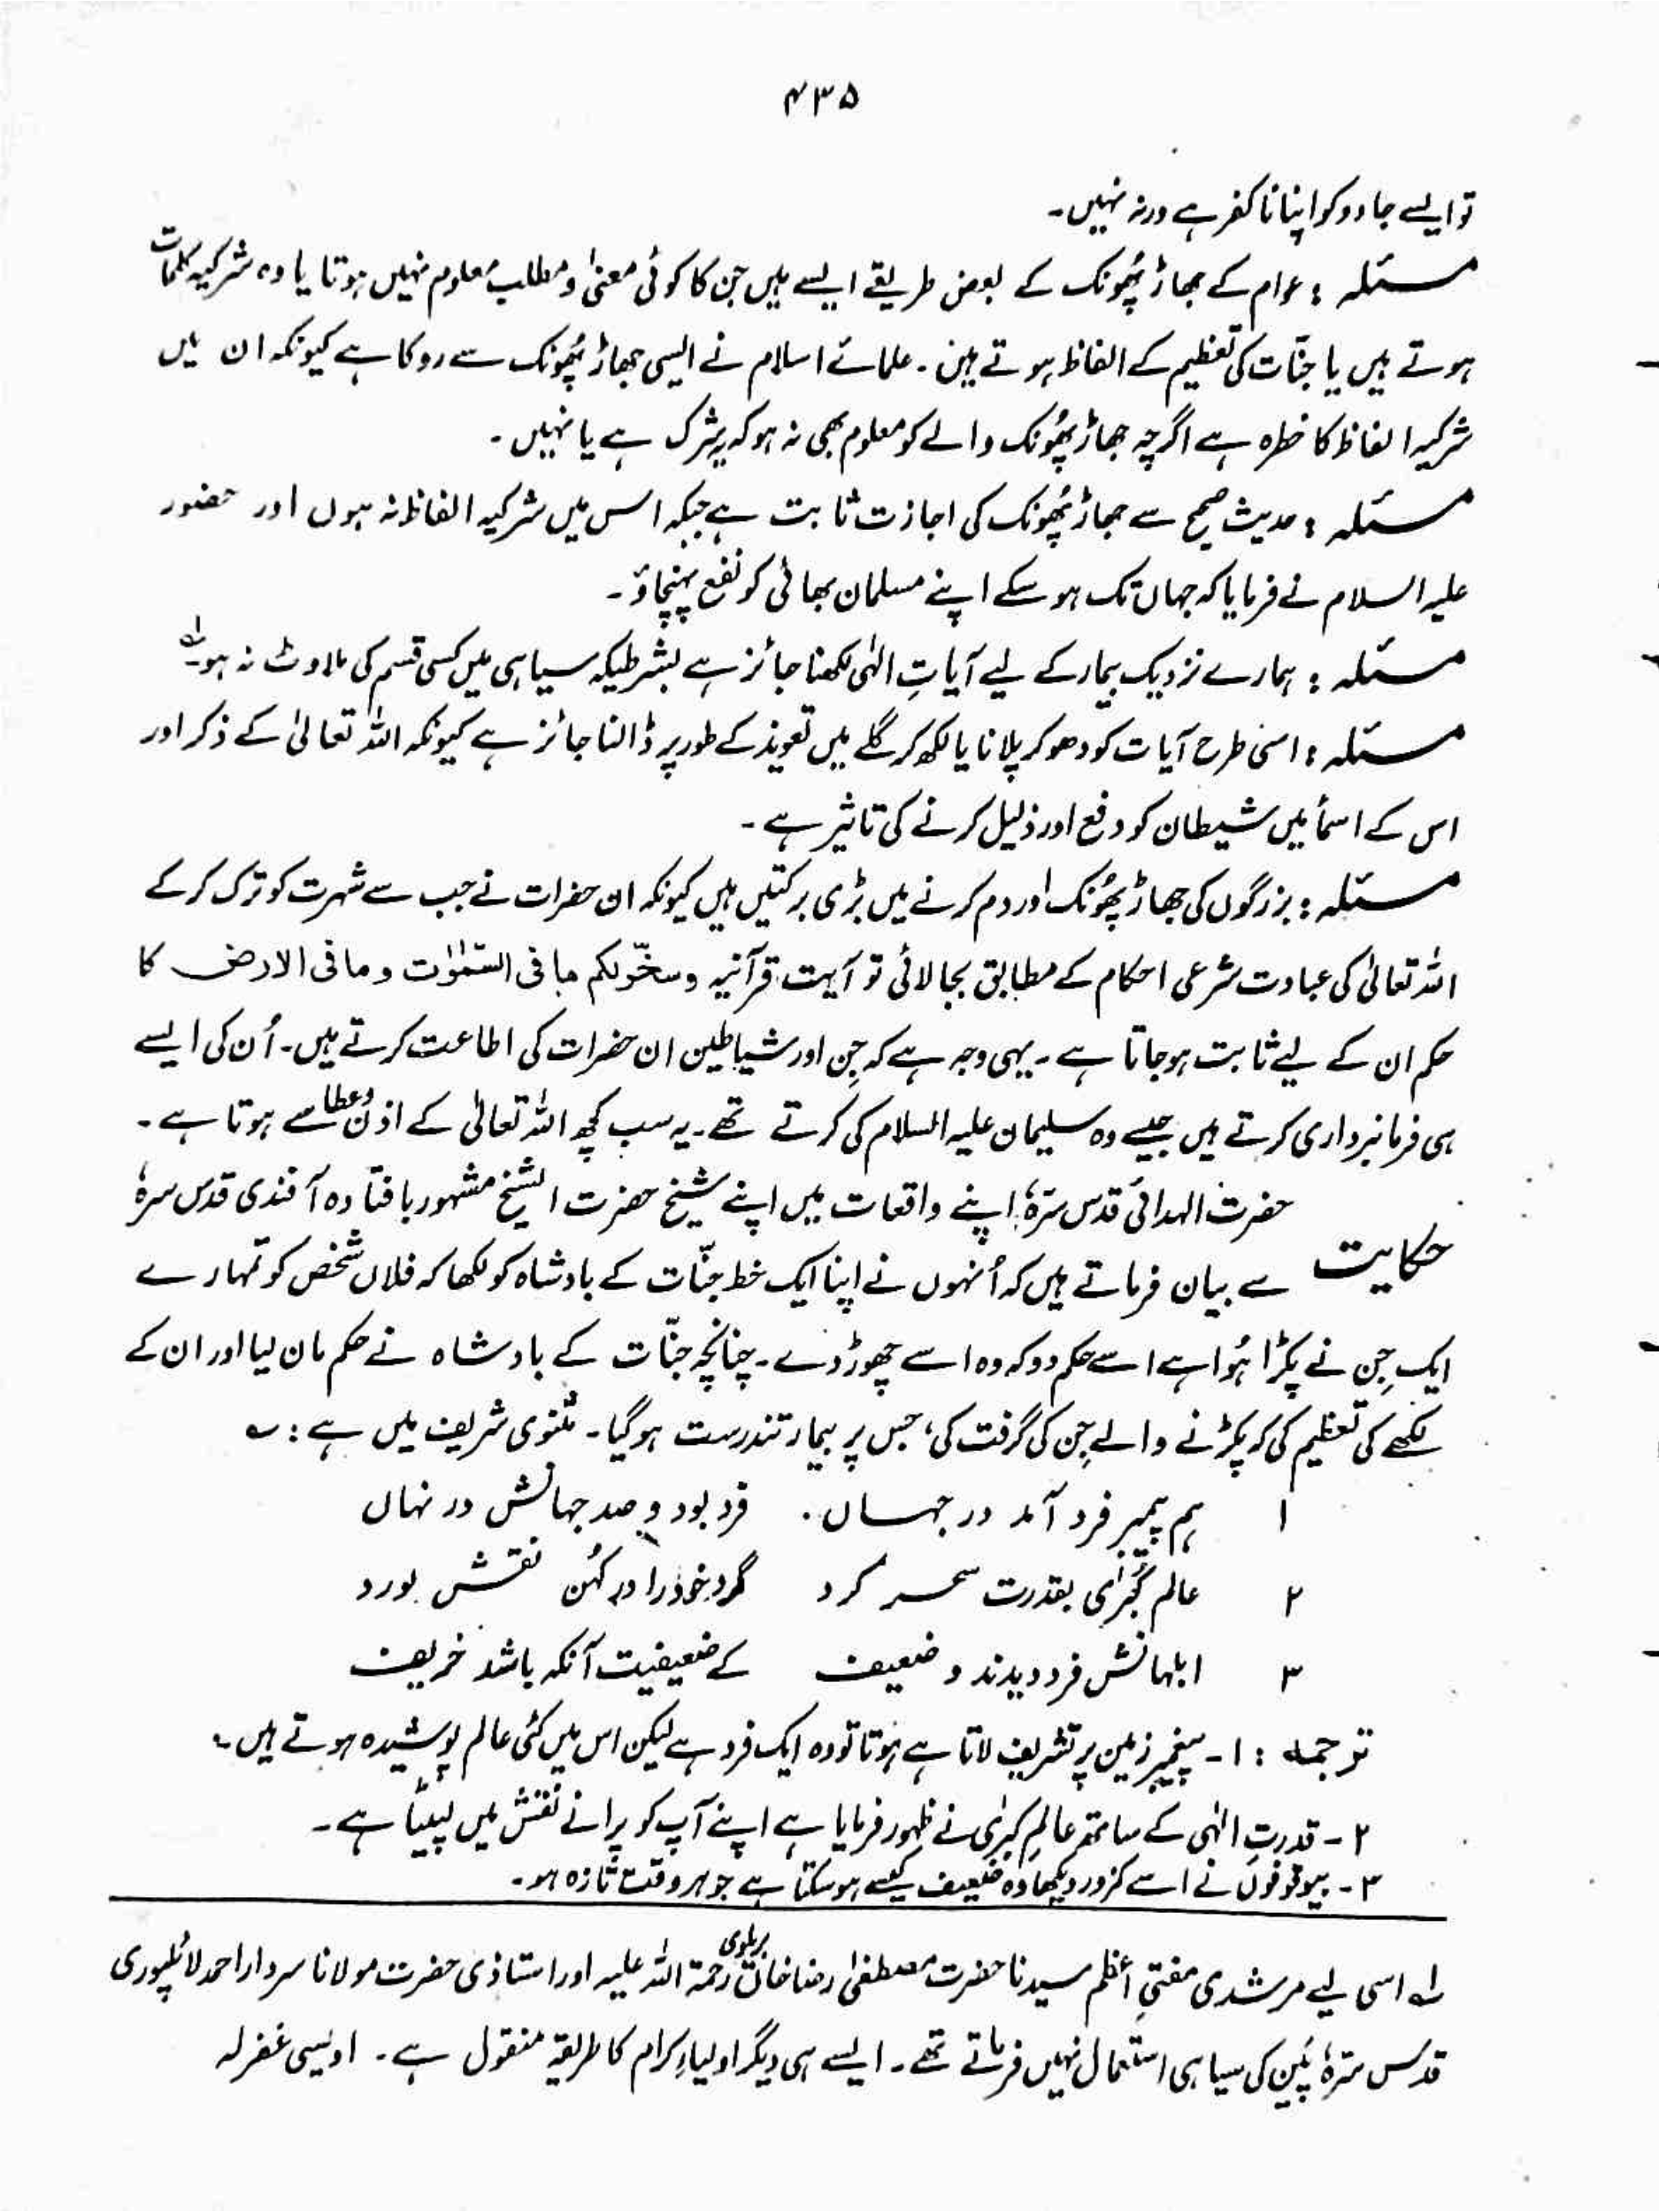 ۴۳۵
تو ایسے جادو کو اپنانا کفر ہے ورنہ نہیں۔
مسئلہ : عوام کے جھاڑ پھُونک کے بعض طریقے ایسے ہیں جن کا کوئی معنیٰ و مطلب معلوم نہیں ہوتا یا وہ شرکیہ کلمات
ہوتے ہیں یا جنّات کی تعظیم کے الفاظ ہوتے ہیں۔ علمائے اسلام نے ایسی جھاڑ پھُونک سے روکا ہے کیونکہ ان میں
شرکیہ الفاظ کا خطرہ ہے اگرچہ جھاڑ پھُونک والے کو معلوم بھی نہ ہو کہ یہ شرک ہے یا نہیں۔
مسئلہ : حدیث صحیح سے جھاڑ پھُونک کی اجازت ثابت ہے جبکہ اس میں شرکیہ الفاظ نہ ہوں اور حضور
علیہ السلام نے فرمایا کہ جہاں تک ہو سکے اپنے مسلمان بھائی کو نفع پہنچاؤ۔
مسئلہ : ہمارے نزدیک بیمار کے لیے آیاتِ الٰہی لکھنا جائز ہے بشرطیکہ سیاہی میں کسی قسم کی ملاوٹ نہ ہو۔لہ
مسئلہ : اسی طرح آیات کو دھو کر پلانا یا لکھ کر گلے میں تعویذ کے طور پر ڈالنا جائز ہے کیونکہ اللہ تعالیٰ کے ذکر اور
اس کے اسمأ میں شیطان کو دفع اور ذلیل کرنے کی تاثیر ہے۔
مسئلہ : بزرگوں کی جھاڑ پھُونک اور دم کرنے میں بڑی برکتیں ہیں کیونکہ ان حضرات نے جب سے شہرت کو ترک کرکے
اللہ تعالیٰ کی عبادت شرعی احکام کے مطابق بجا لائی تو آیت قرآنیہ وسخّرلکم مافی السمٰوٰت ومافی الارض کا
حکم ان کے لیے ثابت ہوجاتا ہے۔ یہی وجہ ہے کہ جِن اور شیاطین ان حضرات کی اطاعت کرتے ہیں۔ اُن کی ایسے
ہی فرمانبرداری کرتے ہیں جیسے وہ سلیمان علیہ السلام کی کرتے تھے۔ یہ سب کچھ اللہ تعالیٰ کے اذن وعطا سے ہوتا ہے۔
حضرت الہدائی قدس سرّہٗ اپنے واقعات میں اپنے شیخ حضرت الشیخ مشہور بافتادہ آفندی قدس سرہٗ
حکایت سے بیان فرماتے ہیں کہ اُنہوں نے اپنا ایک خط جنّات کے بادشاہ کو لکھا کہ فلاں شخص کو تمہارے
ایک جِن نے پکڑا ہُوا ہے اسے حکم دو کہ وہ اسے چھوڑ دے۔ چنانچہ جنّات کے بادشاہ نے حکم مان لیا اور ان کے
لکھے کی تعظیم کی کہ پکڑنے والے جِن کی گرفت کی، جس پر بیمار تندرست ہوگیا۔ مثنوی شریف میں ہے : ؎
۱ ہم پیمبر فرد آمد در جہاں. فرد بود و صد جہانش در نہاں
۲ عالم کُبریٰ بقدرت سحر کرد گرد خود را در کہُن نقش نورد
۳ ابلہانش فرد دیدند و ضعیف کے ضعیفیت آنکہ باشد خریف
ترجمہ : ۱۔ پیغمبر زمین پر تشریف لاتا ہے ہوتا تو وہ ایک فرد ہے لیکن اس میں کئی عالم پوشیدہ ہوتے ہیں۔
۲۔ قدرتِ الٰہی کے ساتھ عالمِ کبریٰ نے ظہور فرمایا ہے اپنے آپ کو پرانے نقش میں لپیٹا ہے۔
۳۔ بیوقوفوں نے اسے کمزور دیکھا وہ ضعیف کیسے ہوسکتا ہے جو ہر وقت تازہ ہو۔
لہ اسی لیے مرشدی مفتیِ اعظم سیدنا حضرت مصطفیٰ رضا خاں بریلوی رحمۃ اللہ علیہ اور استاذی حضرت مولانا سردار احمد لائلپوری
قدس سرّہٗ پَین کی سیاہی استعمال نہیں فرماتے تھے۔ ایسے ہی دیگر اولیاءِ کرام کا طریقہ منقول ہے۔ اویسی غفرلہ